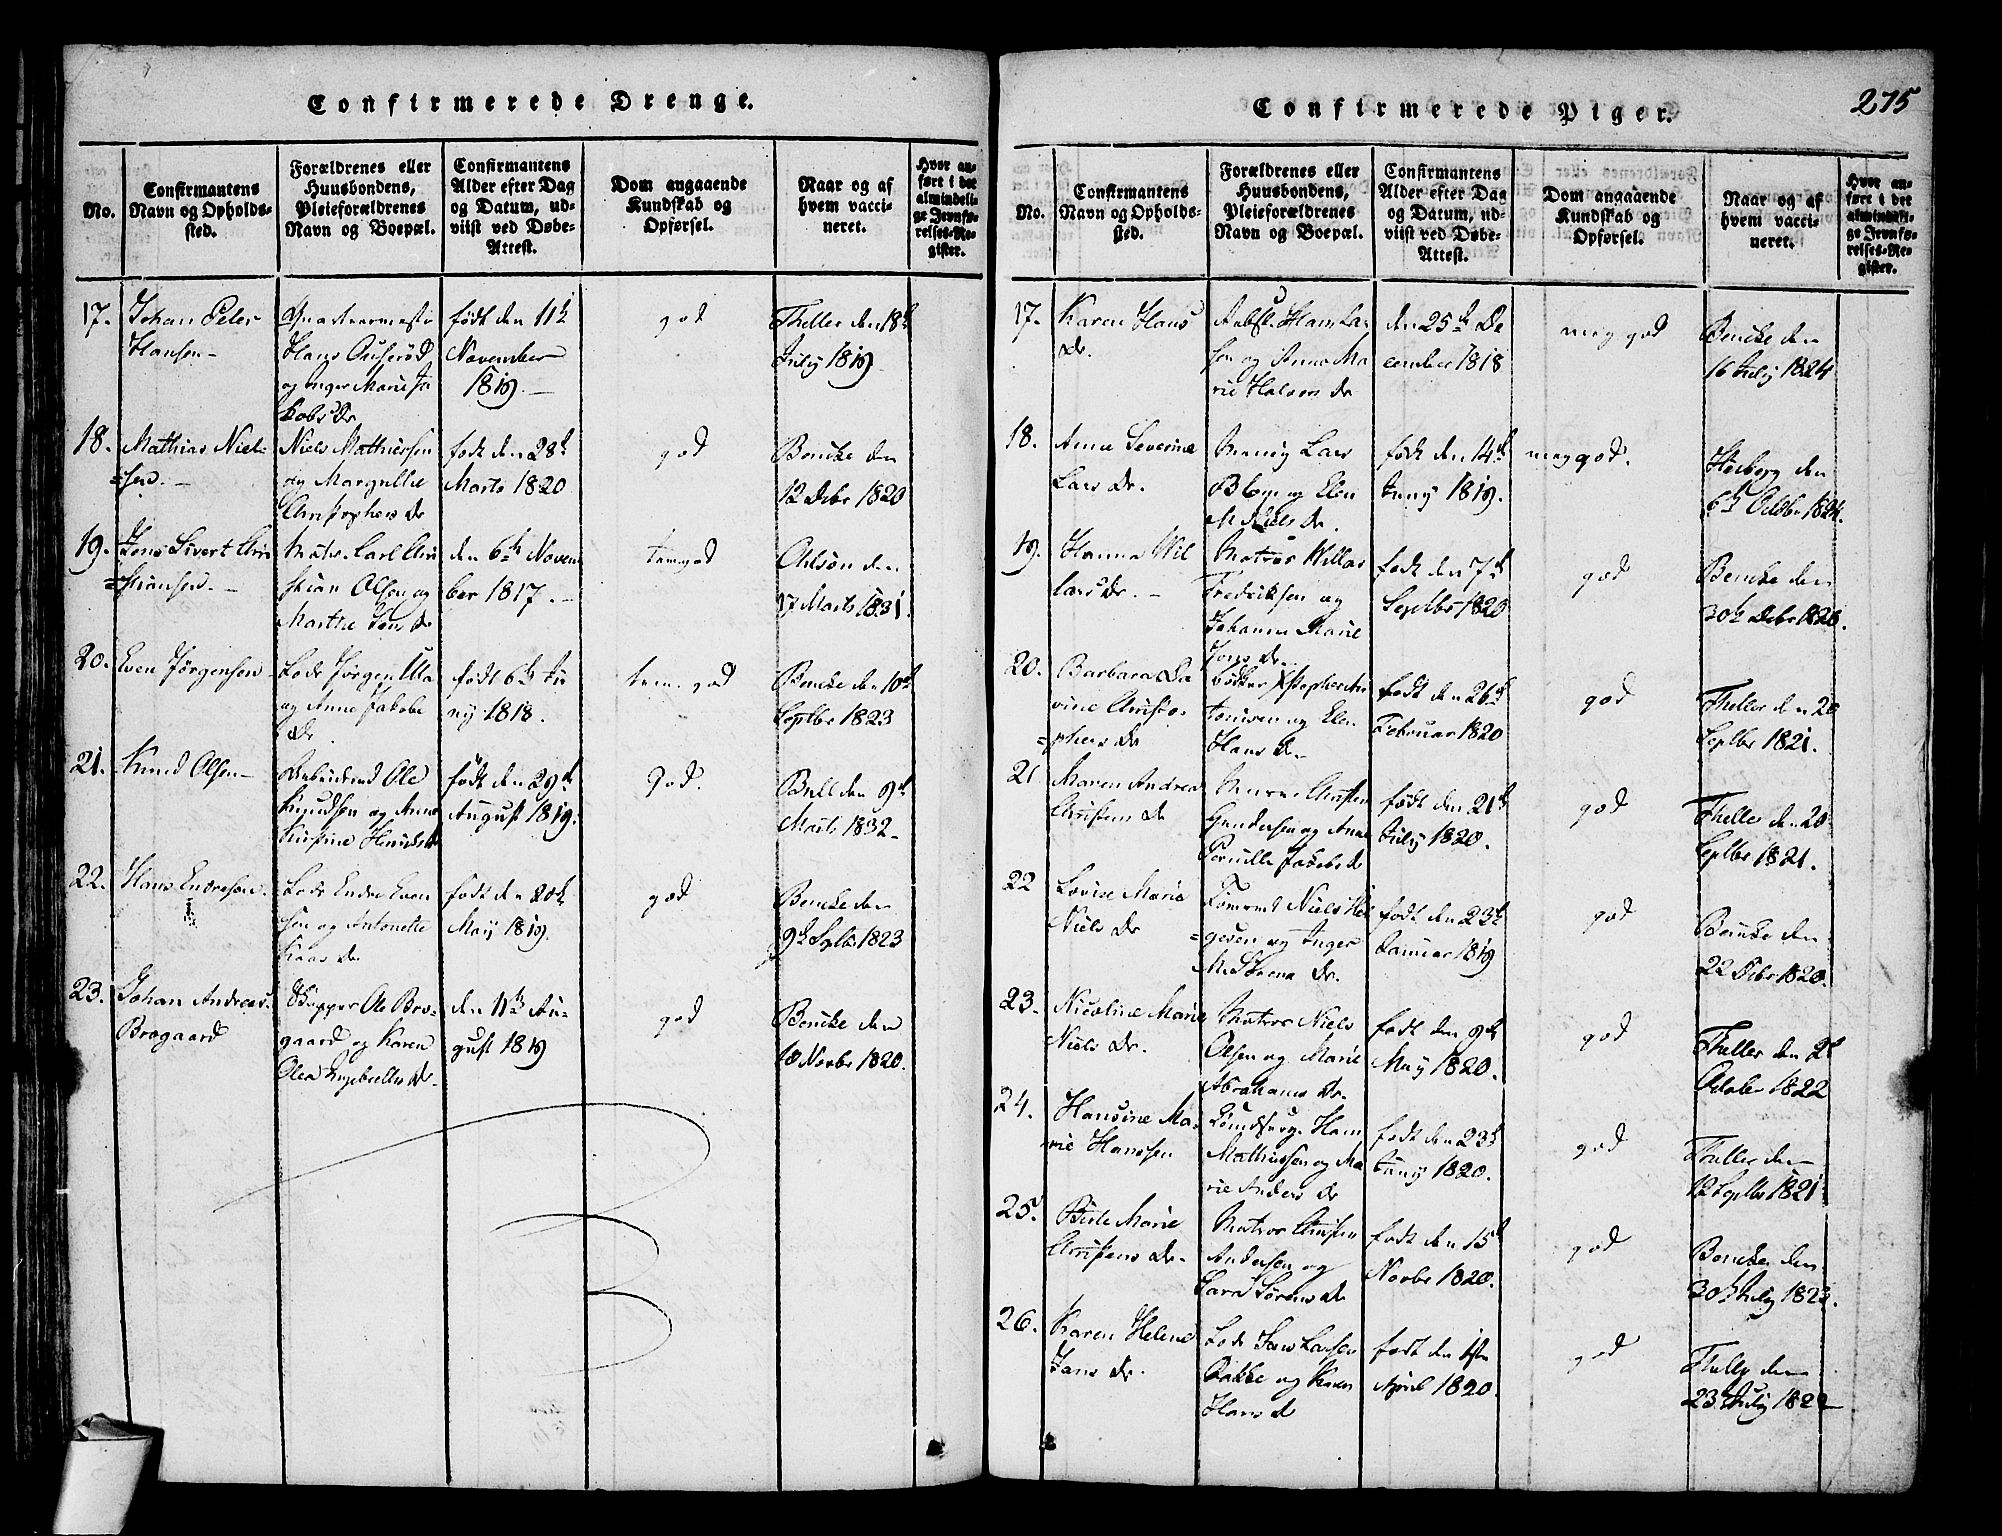 Confirmerede Drenge.
No.
Confirmantens
Navn og Opholds-
sted.
Forældrenes eller
Huusbondens,
Pleieforældrenes
Navn og Boepæl.
Confirmantens
Alder efter Dag
og Datum, ud-
viist ved Døbe-
Attest.
Dom angaaende
Kundskab og
Opførsel.
Naar og af
hvem vacci-
neret.
Hvor an-
ført i det
almindeli-
ge Jevnfø-
relses-Re-
gister.
17.
Johan Peter
Hansen
Hans
og Inger Marie Ja
kobs Dr
født den 11te
November
1819.
god
Theller den 18de
July 1819
18.
Mathias Niel-
=sen.
Niels Mathiessen
og Margrethe
Christophers Dr
født den 28de
Marts 1820
god
Bencke den
12 Decbr 1820
19.
Jens Sivert Chri
=stiansen.
Matr. Carl Chri
stian Olsen og
Marthe Jens Dr
den 6te Novem
ber 1817.
temgod
Ohlson den
17 Marts 1831.
20.
Even Jørgensen
Lods Jørgen Ula
og Anne Jakobs
Dr
født 6te Ju
ny 1818.
tem. god
Bencke den 10de
Septbr 1823
21.
Knud Olsen
Arbeidsmd Ole
Knudsen og Anne
Kirstine Henriks Dr
født den 29de
August 1819.
god.
Bull den 9de
Marts 1832
22.
Hans Endresen
Lods Endre Even
sen og Antonette
Kaas Dr
født den 20de
May 1819.
god
Bencke den
9de Septbr 1823
23.
Johan Andreas
Brogaard
Skipper Ole Bro-
gaard og Karen
Olea Engebretts Dr.
den 11te Au-
gust 1819
god
Bencke den
18 Novbr 1820.
Confirmerede Piger.
275
No.
Confirmantens
Navn og Opholds-
sted.
Forældrenes eller
Huusbondens,
Pleieforældrenes
Navn og Boepæl.
Confirmantens
Alder efter Dag
og Datum, ud-
viist ved Døbe-
Attest.
Dom angaaende
Kundskab og
Opførsel.
Naar og af
hvem vacci-
neret.
Hvor an-
ført i det
almindeli-
ge Jevnfø-
relses-Re-
gister.
17.
Karen Hans
Dr.
Hans Lar
sen og Anne Ma
rie Halvors Dr
den 25de De
cember 1818
meg god
Bencke den
16 July 1824
18.
Anne Severine
Lars Dr.
Lars
og Elen
M. Niels Dr.
født den 14de
Juny 1819.
meg god.
Høeberg den
6te Octbr 1824.
19.
Hanna Wil
lars Dr.
Matros Willas
Fredriksen og
Johanne Marie
Jens Dr.
født den 7de
Septbr 1820
god
Bencke den
30te Decbr 1820.
20.
Barbara Da
vine Christo-
=phers Dr
Bødker Xstopher An
tonisen og Elen
Hans Dr.
født den 26de
Februar 1820
god
Theller den 20
Septbr 1821.
21
Maren Andrea
Christens Dr
Christen
Gundersen og Anne
Pernille Jakobs Dr
født den 21de
July 1820.
god
Theller den 20
Septbr 1821.
22
Lovise Marie
Niels Dr
Tømermd Niels Hel
=gesen og Inger
M. Sørens Dr.
født den 23de
Januar 1819
god
Bencke den
22 Decbr 1820.
23.
Nicoline Marie
Niels Dr.
Matros Niels
Olsen og Marie
Abrahams Dr.
født den 9de
May 1820.
god
Theller den 2de
October 1822
24.
Hansine Ma-
rie Hanssen
Hans
Mathiessen og Ma
rie Anders Dr
født den 23de
Juny 1820.
god
Theller den
12 Septbr 1821
25.
Berte Marie
Christens Dr.
Matros Christen
Andersen og
Sara Sørens Dr
født den 15de
Novbr 1820.
god
Bencke den
30te July 1823.
26.
Karen Helene
Jans Dr.
Lods Jans Larsen
Bakke og Karen
Hans Dr
født den 1ste
April 1820.
god
Thelly den
23de July 1822